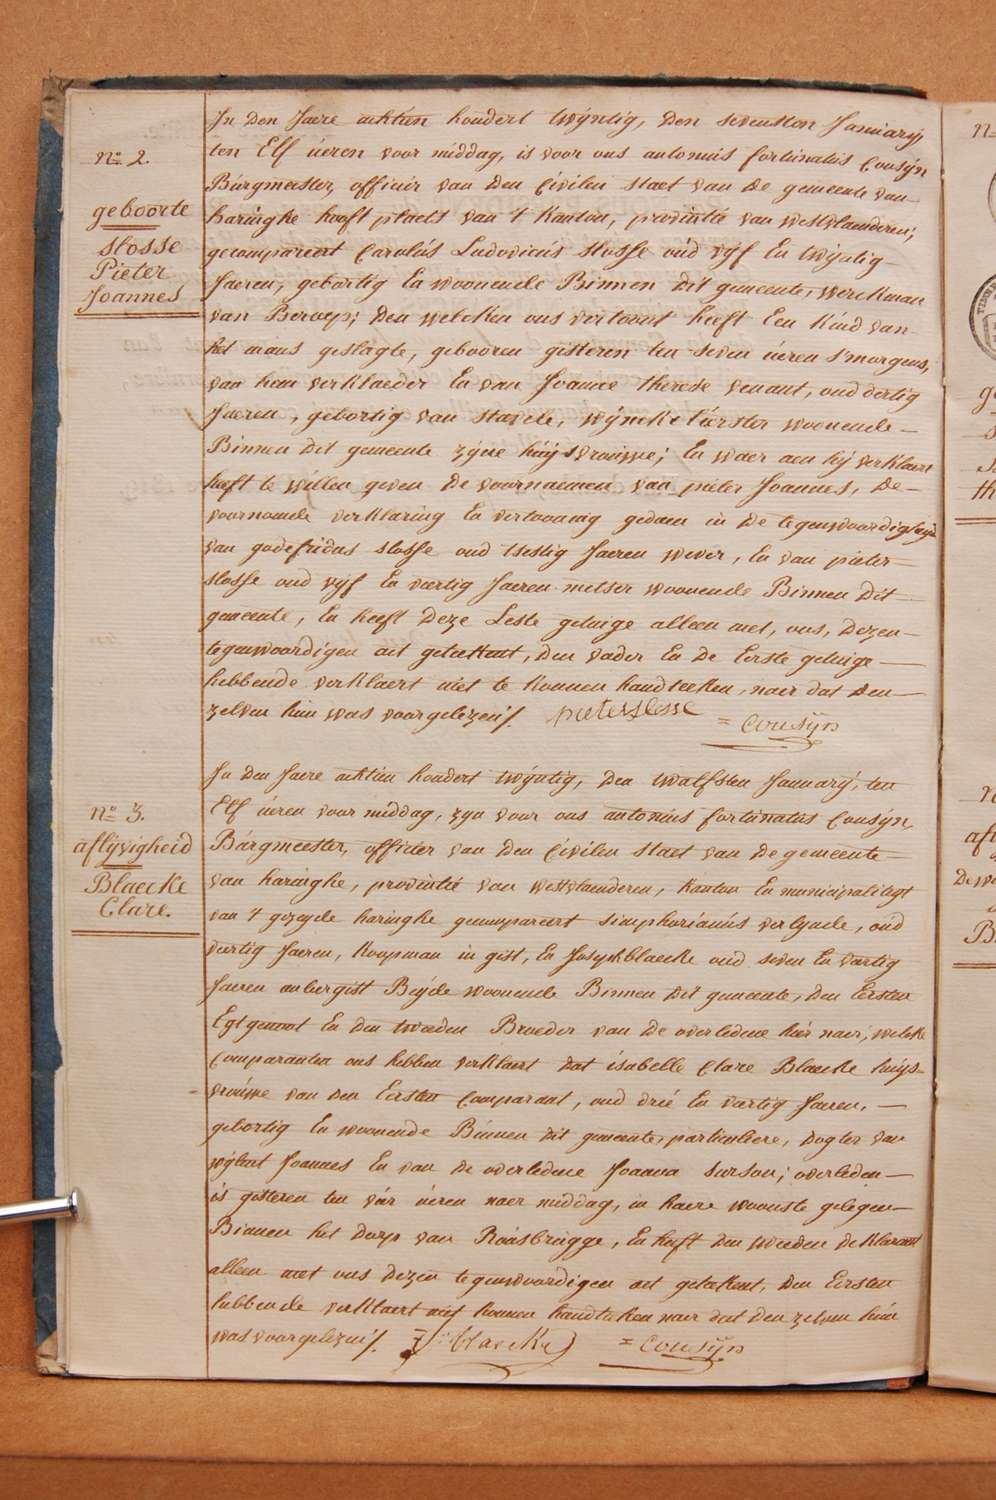 No 2.
geboorte
Slosse
Pieter
Joannes
In Den Jaere achtien hondert twÿntig, Den sevensten Januarÿ,
ten Elf ùeren voor middag, is voor ons antonius fortunatus Cousÿn
Bùrgmeester, officier van Den Civilen staet van De gemeente van
haringhe hooft plaets van 't Kanton, provintie van westvlaenderen,
gecompareert Carolùs Ludovicùs Slosse oùd vÿf En twÿntig
Jaeren, gebortig En woonende Binnen Dit gemeente, werckman
van Beroep; Den welcken ons vertoont heeft Een Kind van
het geslagte, gebooren gisteren ten seven ùeren s'morgens,
van hem verklaeder En van Joanne therese venant, oud dertig
Jaeren, gebortig van stavele, woonende
Binnen Dit gemeente zÿne hùÿsvrouwe; En waer aen hÿ verklaert
heeft te willen geven De voornaemen van pieter Joannes, De
voornoemde verklaring En vertooning gedaen in De tegenwoordigheÿd
van godefridus Slosse oud tsestig Jaeren wever, En van pieter
Slosse oud vÿf En veertig Jaeren metser woonende Binnen Dit
gemeente, En heeft Deze Leste getuige alleen met, ons, Dezen
tegenwoordigen act geteekent, Den vader En De Eerste getuige
hebbende verklaert niet te konnen handteeken, naer dat Den
zelven hùn was voorgelezen/.
pieter slosse
= Cousÿn
No 3.
aflÿvigheid
Blaecke
Clare.
In Den Jaere achtien hondert twÿntig, Den twalfsten Januarÿ, ten
Elf ùeren voor middag, zÿn voor ons antonius fortùnatus Cousÿn,
Bùrgmeester, officier van Den Civilen staet van De gemeente
van haringhe, provintie van westvlaenderen, Kanton En municipaliteÿt
van 't gezeyde haringhe gecompareert simphorianùs verlynde, oùd
veertig Jaeren, Koopman in gist, En blaecke oud seven En vertig
Jaeren aubergist Beÿde woonende Binnen Dit gemeente, Den Eersten
Egtgenoot En Den tweeden Broeder van De overledene hier naer, welcke
Comparanten ons hebben verklaert Dat isabelle Clare Blaecke hùÿs-
vroùwe van Den Eersten Comparant, oud drie En vertig Jaeren,
gebortig En woonende Binnen Dit gemeente, particuliere, Dogter van
wÿlent Joannes En van De overledene Joanna ; overleden
is gisteren ten vier ùeren naer middag, in haere woonste gelegen
Binnen het Dorp van Roùsbrùgge, En heeft Den tweeden deklarant
alleen met ons Dezen tegenwoordigen act geteekent, Den Eersten
hebbende verklaert niet konnen handteken naer dat Den zelven hùn
was voorgelezen/.
blaecke
= Cousÿn